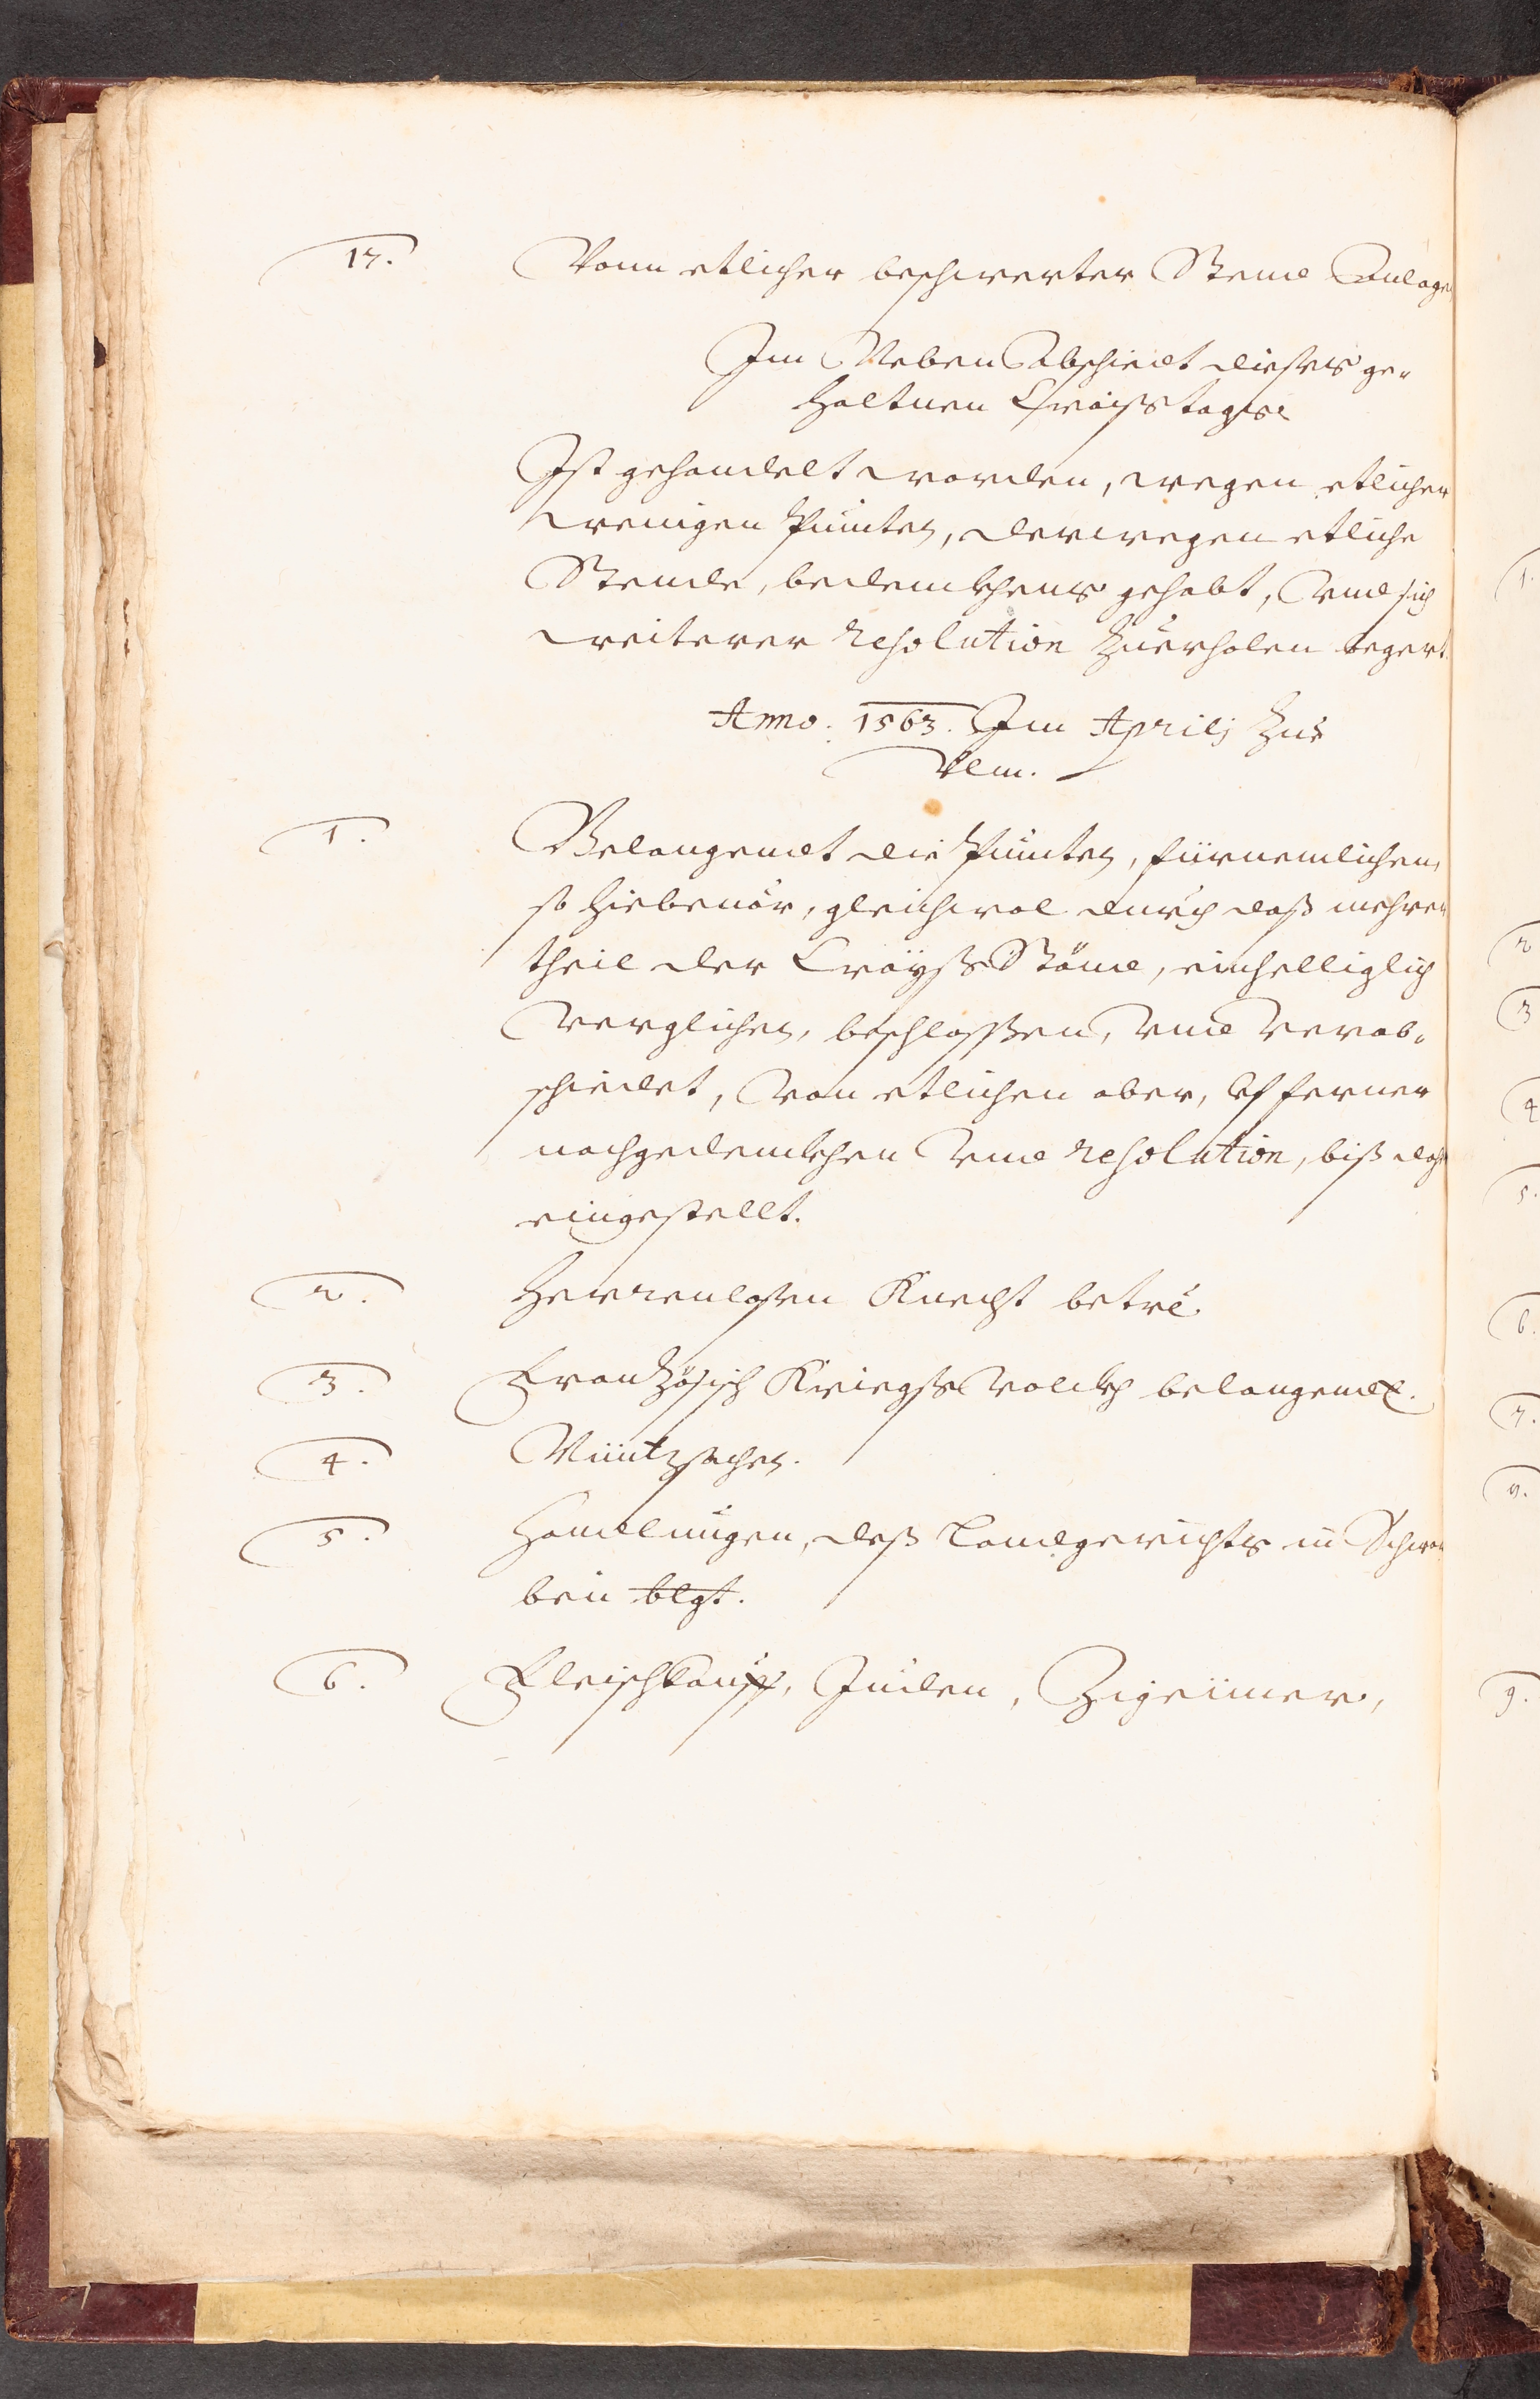 17. Vonn etlicher beschwerter Stend Anlage
Im Neben Abschiedt dieses ge-
haltnen Craißtags
Ist gehandelt worden, wegen etlicher
wenigen Puncten, derwegen etliche
Stende, bedenckhens gehabt, Vnd sich
weiterer resolution zuerholen begert.
Anno. 1563. Im Aprilj zue
Vlm.
1. Belangendt die Puncten, fürnemlichen,
so hiebeuor, gleichwol durch daß mehrer
theil der Crayß Ständ, einhelliglich
Verglichen, beschlossen, Vnd Verab-
schiedet, Von etlichen aber, vf ferner
nachgedenckhen Vnd resolution, biß
eingestellt.
2. Herrenlosen Knecht betr.
3. Frantzösisch Kriegß Volckh belangendt.
4. Müntzsachen.
5. Handlungen, deß Landgerichts in Schwa
ben blgt.
6. Fleischkauff, Juden, Zigeüner,
1.
2
3
4
5.
6.
7.
8.
9.